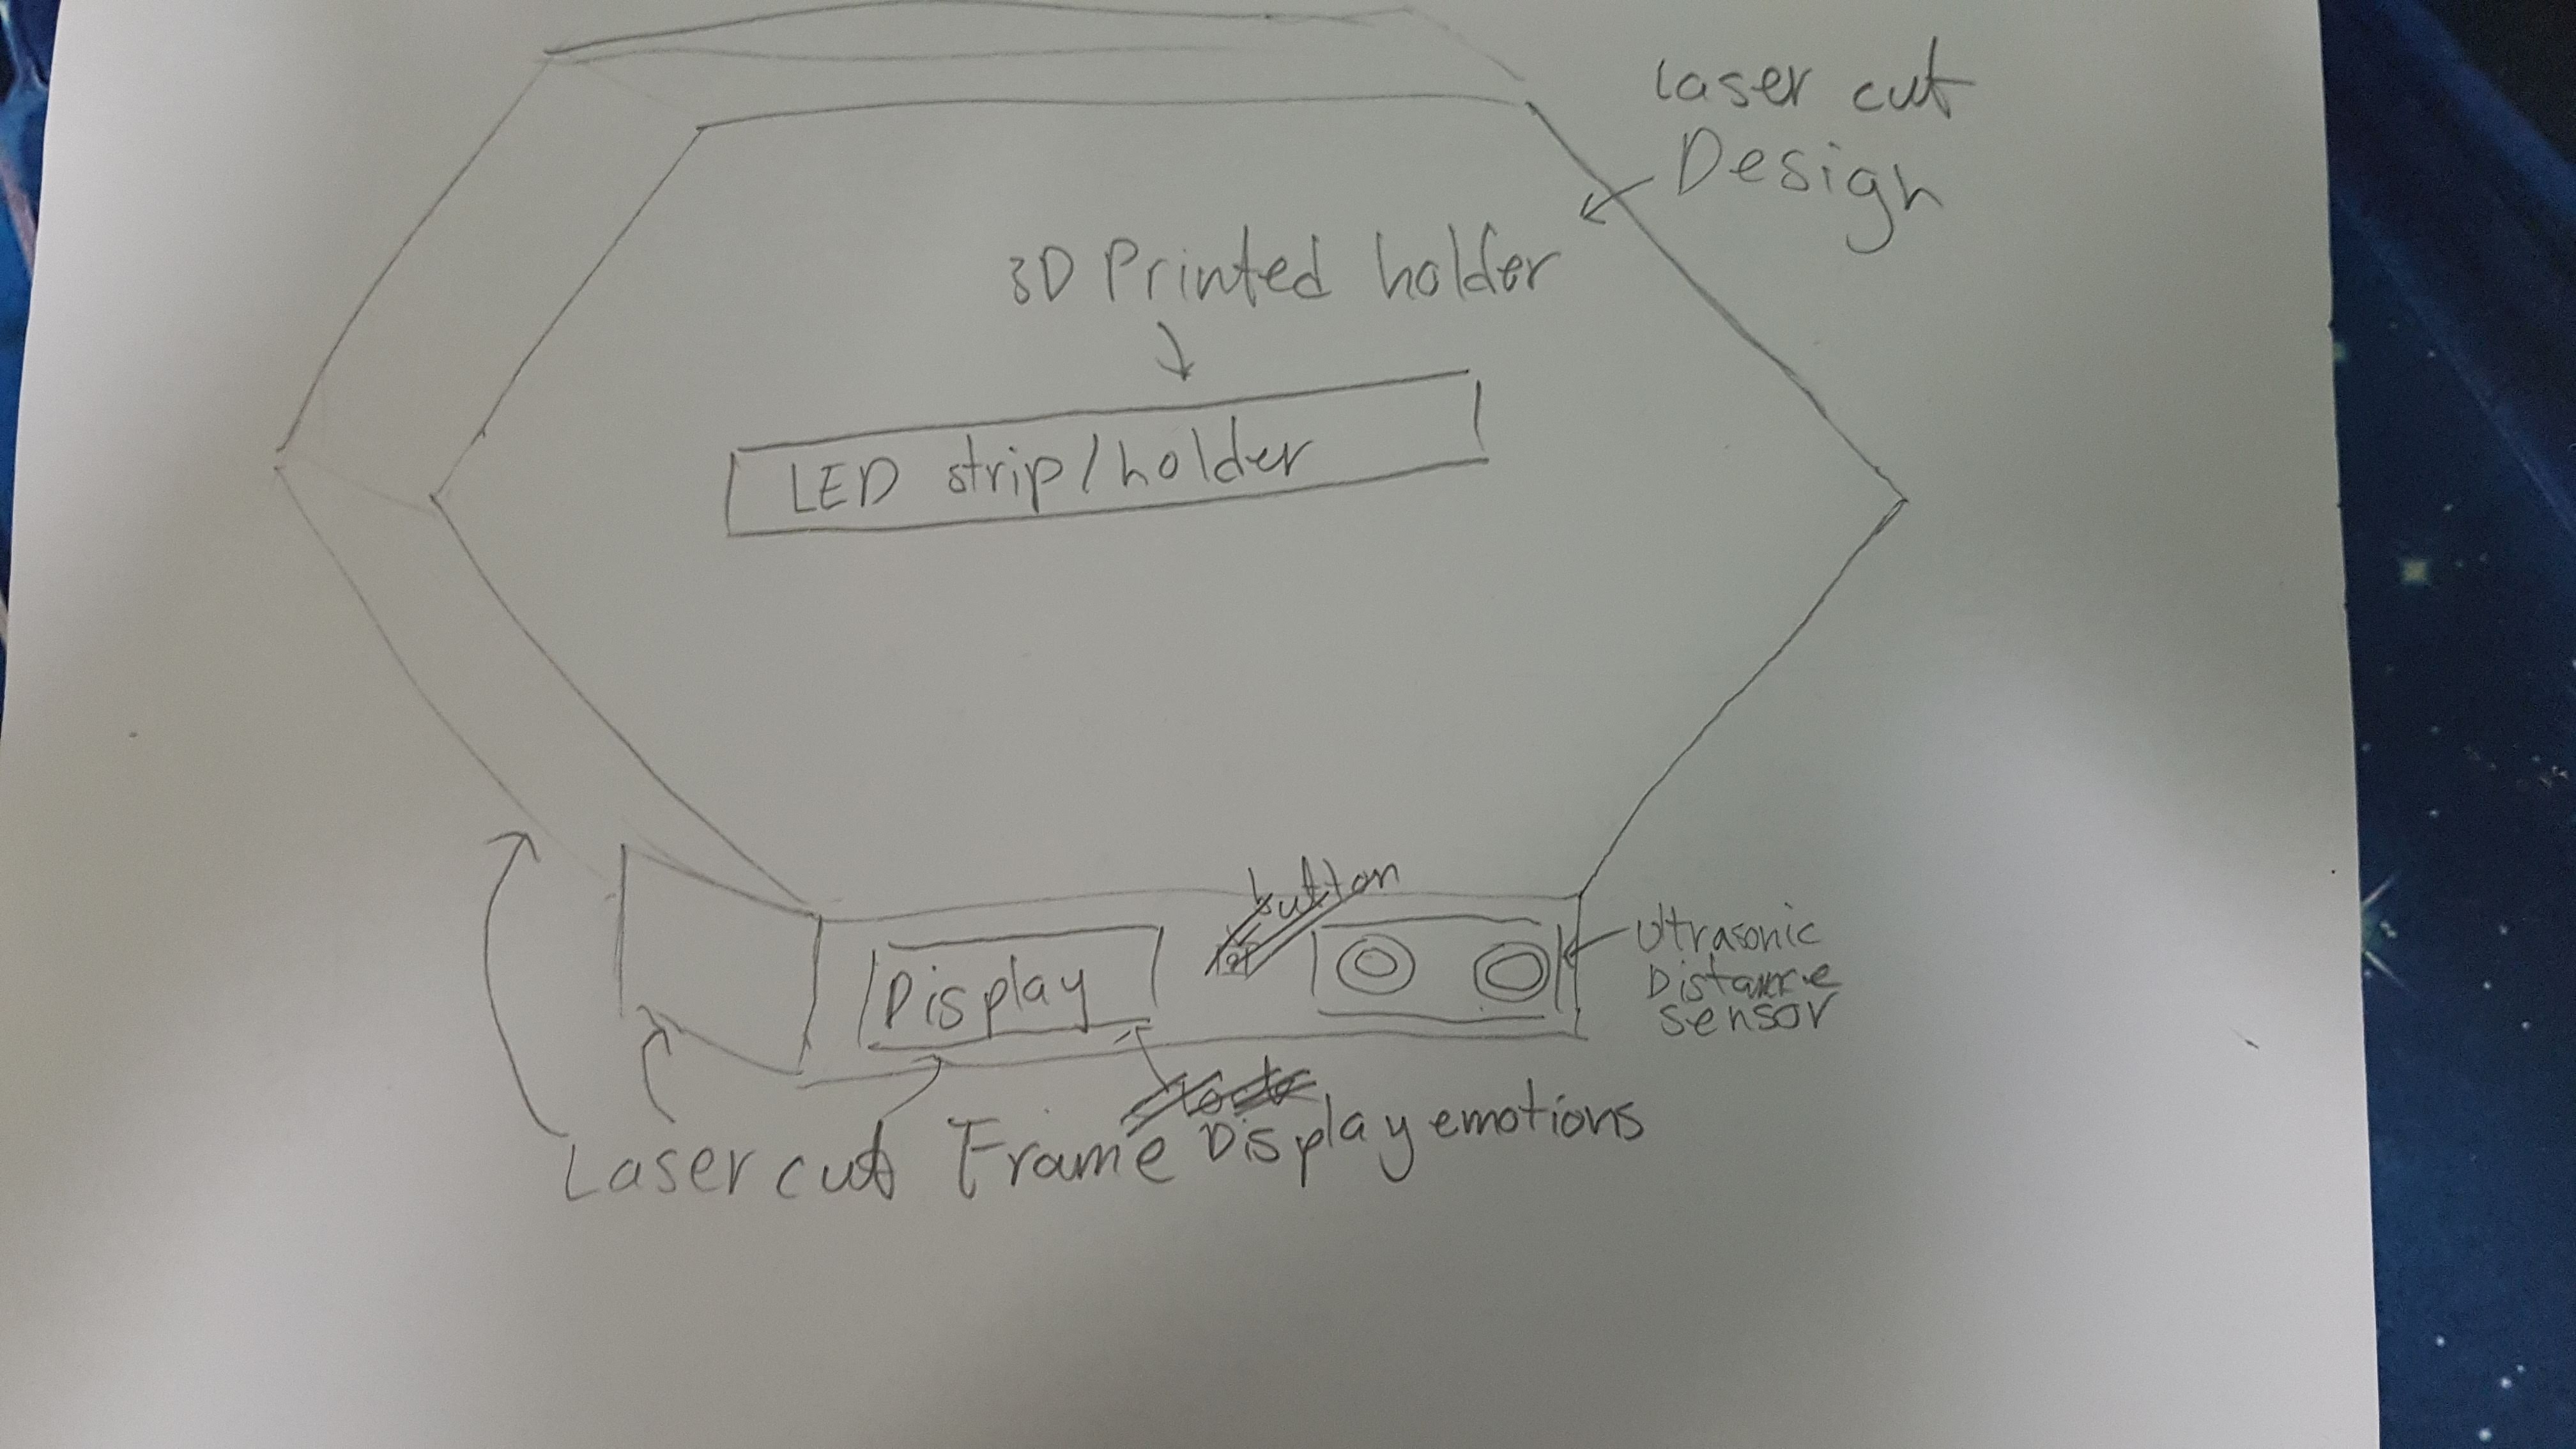 laser cut
Design
3D Printed holder
LED strip/holder
button
Display
Utrasonic
Distance
sensor
Laser cut Frame Display emotions